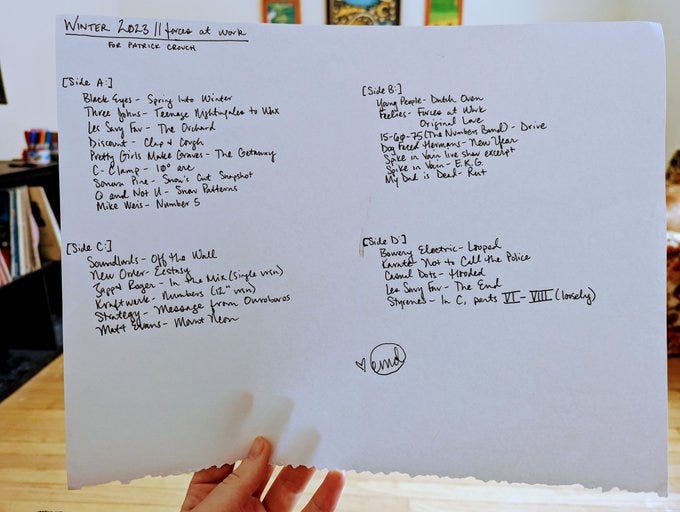 WINTER 2023 // forces at work
FOR PATRICK CROUCH
[Side A:]
Black Eyes - Spring Into Winter
Three Johns - Teenage Nightingales to Wax
Les Savy Fav - The Orchard
Discount - Clap & Cough
Pretty Girls Make Graves - The Getaway
C-Clamp - 10° arc
Sonora Pine - Snow's Cut Snapshot
Q and Not U - Snow Patterns
Mike Weis - Number 5
[Side B:]
Young People - Dutch Oven
Feelies - Forces at Work
Original Love
15-60-75 (The Numbers Band) - Drive
Dog Faced Hermans - New Year
Spike in Vain live show excerpt
Spike in Vain - E.K.G.
My Dad is Dead - Rut
[Side C:]
Soundlords - Off the Wall
New Order - Ecstasy
Zapp & Roger - In the Mix (single vrsn)
Kraftwerk - Numbers (12" vrsn)
Strategy - Message from Ouroboros
Matt Evans - Mount Neon
[Side D:]
Bowery Electric - Looped
Karate - Not to Call the Police
Casual Dots - Hooded
Les Savy Fav - The End
Styrenes - In C, parts VI - VIII (loosely)
emd